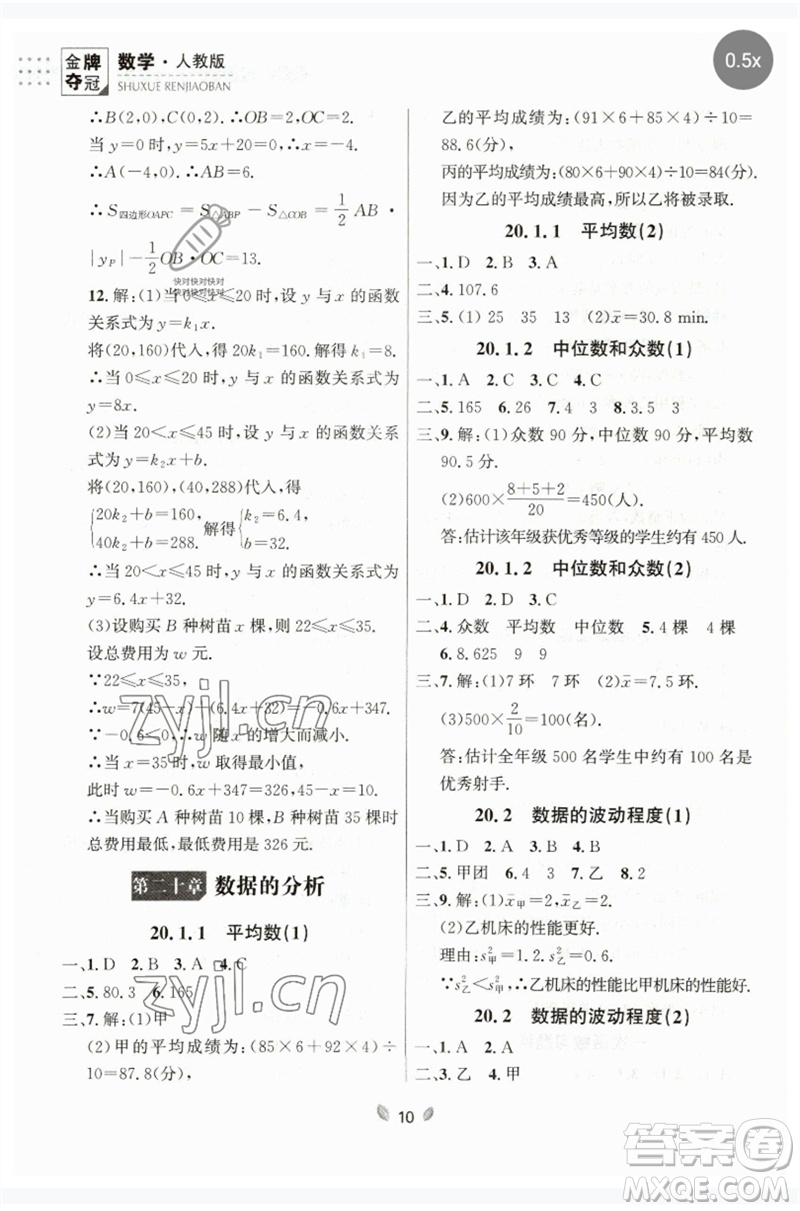 金牌夺冠 数学·人教版
SHUXUE RENJIAOBAN
0.5x
∴B(2,0),C(0,2).∴OB=2,OC=2.
当y=0时,y=5x+20=0.
∴A(-4,0).∴AB=6.
∴S四边形OAPC=S△ABP-S△COB=1/2 AB·
|yP|-1/2 OB·OC=13.
快对快对快对
快对快对快对
12.解:(1)当0≤x≤20时,设y与x的函数
关系式为y=k₁x.
将(20,160)代入,得20k₁=160.解得k₁=8.
∴当0≤x≤20时,y与x的函数关系式为
y=8x.
(2)当20<x≤45时,设y与x的函数关系
式为y=k₂x+b.
将(20,160),(40,288)代入,得
{20k₂+b=160, 40k₂+b=288. 解得{k₂=6.4, b=32.
∴当20<x≤45时,y与x的函数关系式为
y=6.4x+32.
(3)设购买B种树苗x棵,则22≤x≤35.
设总费用为w元.
∵22≤x≤35,
∴w=7(45-x)+(6.4x+32)=-0.6x+347.
∵-0.6<0,w随x的增大而减小.
∴当x=35时,w取得最小值.
此时w=-0.6x+347=326,45-x=10.
∴当购买A种树苗10棵,B种树苗35棵时
总费用最低,最低费用是326元.
第二十章 数据的分析
20.1.1 平均数(1)
一、1.D 2.B 3.A 4.C
二、5.80.3 6.165
三、7.解:(1)甲
(2)甲的平均成绩为:(85×6+92×4)÷
10=87.8(分),
乙的平均成绩为:(91×6+85×4)÷10=
88.6(分),
丙的平均成绩为:(80×6+90×4)÷10=84(分).
因为乙的平均成绩最高,所以乙将被录取.
20.1.1 平均数(2)
一、1.D 2.B 3.A
二、4.107.6
三、5.(1)25 35 13 (2)x̄=30.8 min.
20.1.2 中位数和众数(1)
一、1.A 2.C 3.B 4.C
二、5.165 6.26 7.4 3 8.3.5 3
三、9.解:(1)众数90分,中位数90分,平均数
90.5分.
(2)600×(8+5+2)/20=450(人).
答:估计该年级获优秀等级的学生约有450人.
20.1.2 中位数和众数(2)
一、1.D 2.D 3.C
二、4.众数 平均数 中位数 5.4棵 4棵
6.8.625 9 9
三、7.解:(1)7环 7环 (2)x̄=7.5环.
(3)500×2/10=100(名).
答:估计全年级500名学生中约有100名是
优秀射手.
20.2 数据的波动程度(1)
一、1.D 2.A 3.B 4.B
二、5.甲团 6.3 7.乙 8.2
三、9.解:(1)x̄甲=2,x̄乙=2.
(2)乙机床的性能更好.
理由:s²甲=1.2.s²乙=0.6.
∵s²乙<s²甲,∴乙机床的性能比甲机床的性能好.
20.2 数据的波动程度(2)
一、1.A 2.D
二、3.乙 4.甲
10
zyjl.cn
zyjl.cn
答案圈
MXQE.COM